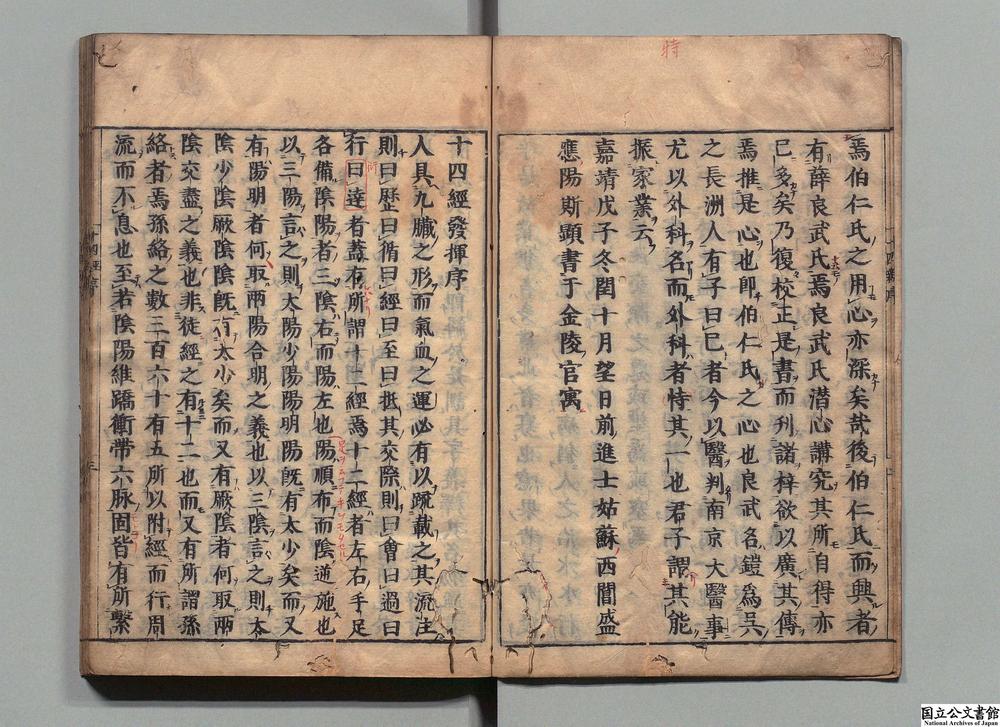 時
焉伯仁氏之用心亦深矣哉後伯仁氏而興者
有薛良武氏焉良武氏潛心講究其所自得亦
已多矣乃復校正是書而刋諸梓欲以廣其傳
焉推是心也卽伯仁氏之心也良武名鎧爲吴
之長洲人有子曰巳者今以醫判南京大醫事
尤以外科名而外科者恃其一也君子謂其能
振家業云
嘉靖戊子冬閏十月望日前進士姑蘇西閶盛
應陽斯顯書于金陵官寓
十四經發揮序
人具九臟之形而氣血之運必有以䟽載之其流注
則曰歷曰循曰經曰至曰抵其交際則曰會曰過曰
行曰達者蓋有所謂十二經焉十二經者左右手足
各備陰陽者三陰右而陽左也陽順布而陰逆施也
以三陽言之則太陽少陽陽明陽旣有太少矣而又
有陽明者何取兩陽合明之義也以三陰言之則太
陰少陰厥陰陰旣有太少矣而又有厥陰者何取兩
陰交盡之義也非徒經之有十二也而又有所謂孫
絡者焉孫絡之數三百六十有五所以附經而行周
流而不息也至若陰陽維蹻衝帶六脉固皆有所繫
国立公文書館
National Archives of Japan